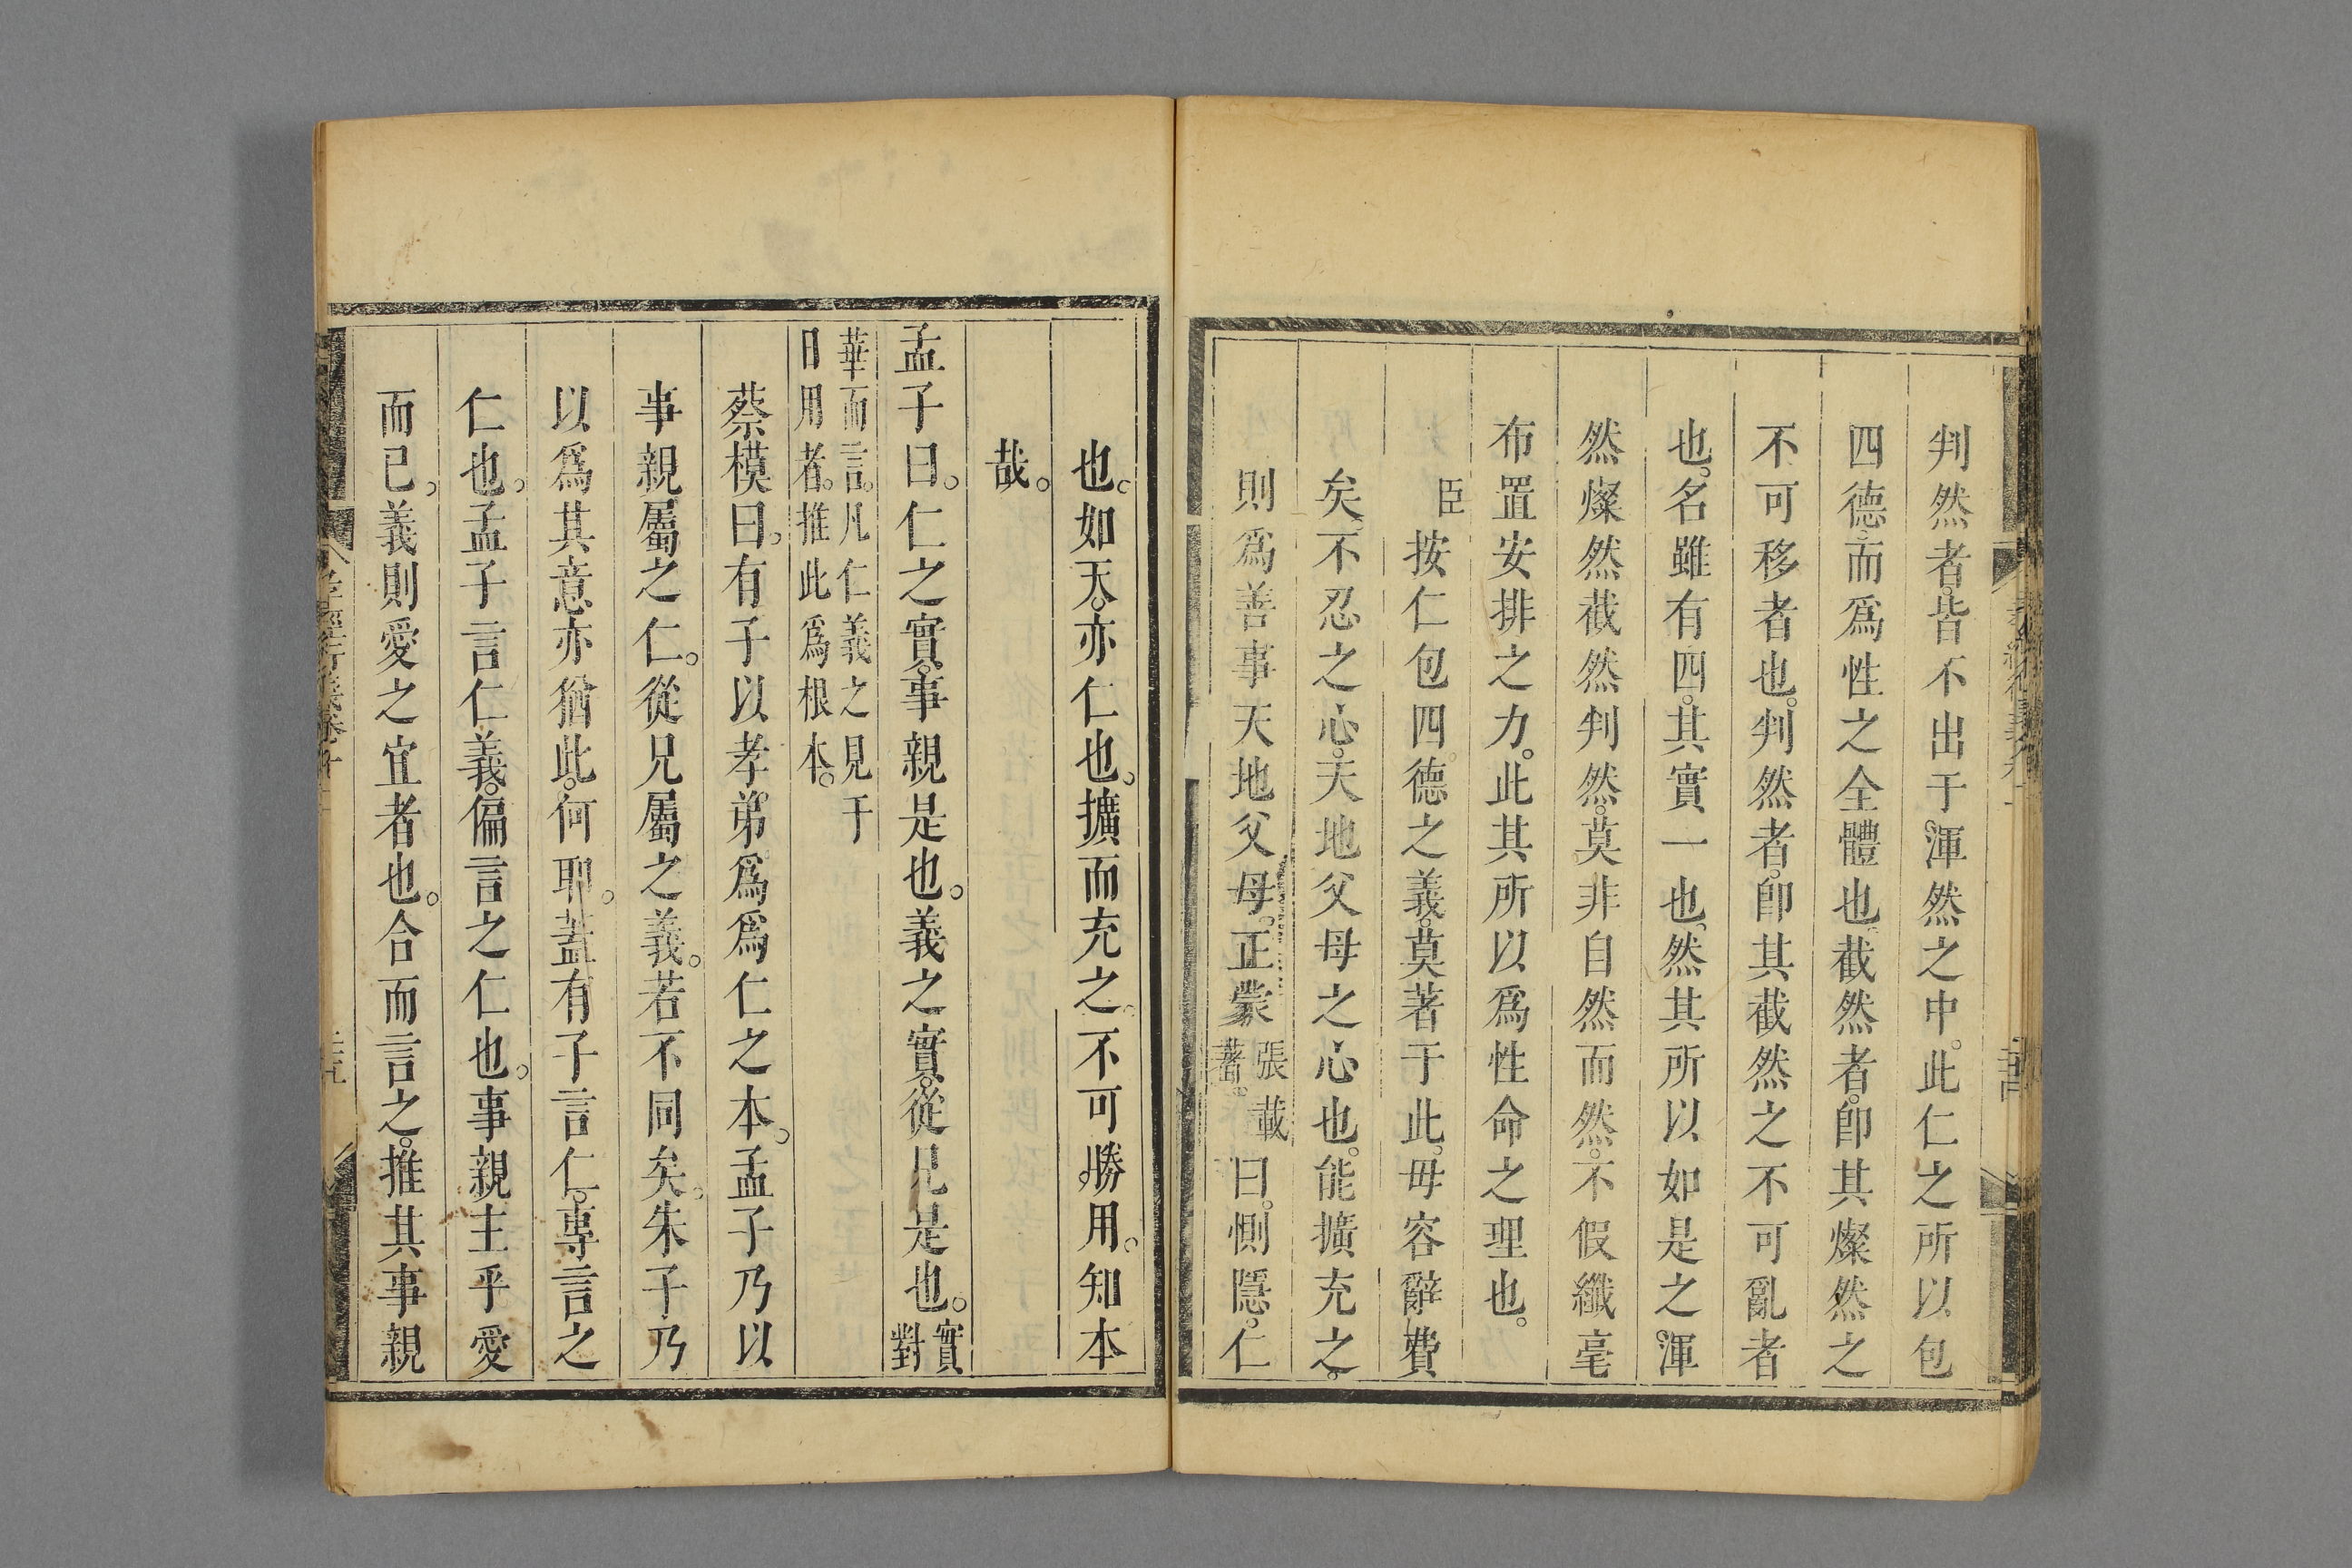 判然者。皆不出于。渾然之中。此仁之所以包
四德。而爲性之全體也。截然者。卽其燦然之
不可移者也。判然者。卽其截然之不可亂者
也。名雖有四。其實一也。然其所以如是之。渾
然燦然截然判然。莫非自然而然。不假纖毫
布置安排之力。此其所以爲性命之理也。
臣按仁包四德之義。莫著于此。毋容辭費
矣。不忍之心。天地父母之心也。能擴充之。
則爲善事天地父母。正蒙張載著。曰。惻隱。仁
也。如天。亦仁也。擴而充之。不可勝用。知本
哉。
孟子曰。仁之實。事親是也。義之實。從兄是也。實對
華而言。凡仁義之見于
日用者。推此爲根本。
蔡模曰。有子以孝弟爲爲仁之本。孟子乃以
事親屬之仁。從兄屬之義。若不同矣。朱子乃
以爲其意亦猶此。何耶。蓋有子言仁。專言之
仁也。孟子言仁義。偏言之仁也。事親主乎愛
而已。義則愛之宜者也。合而言之。推其事親